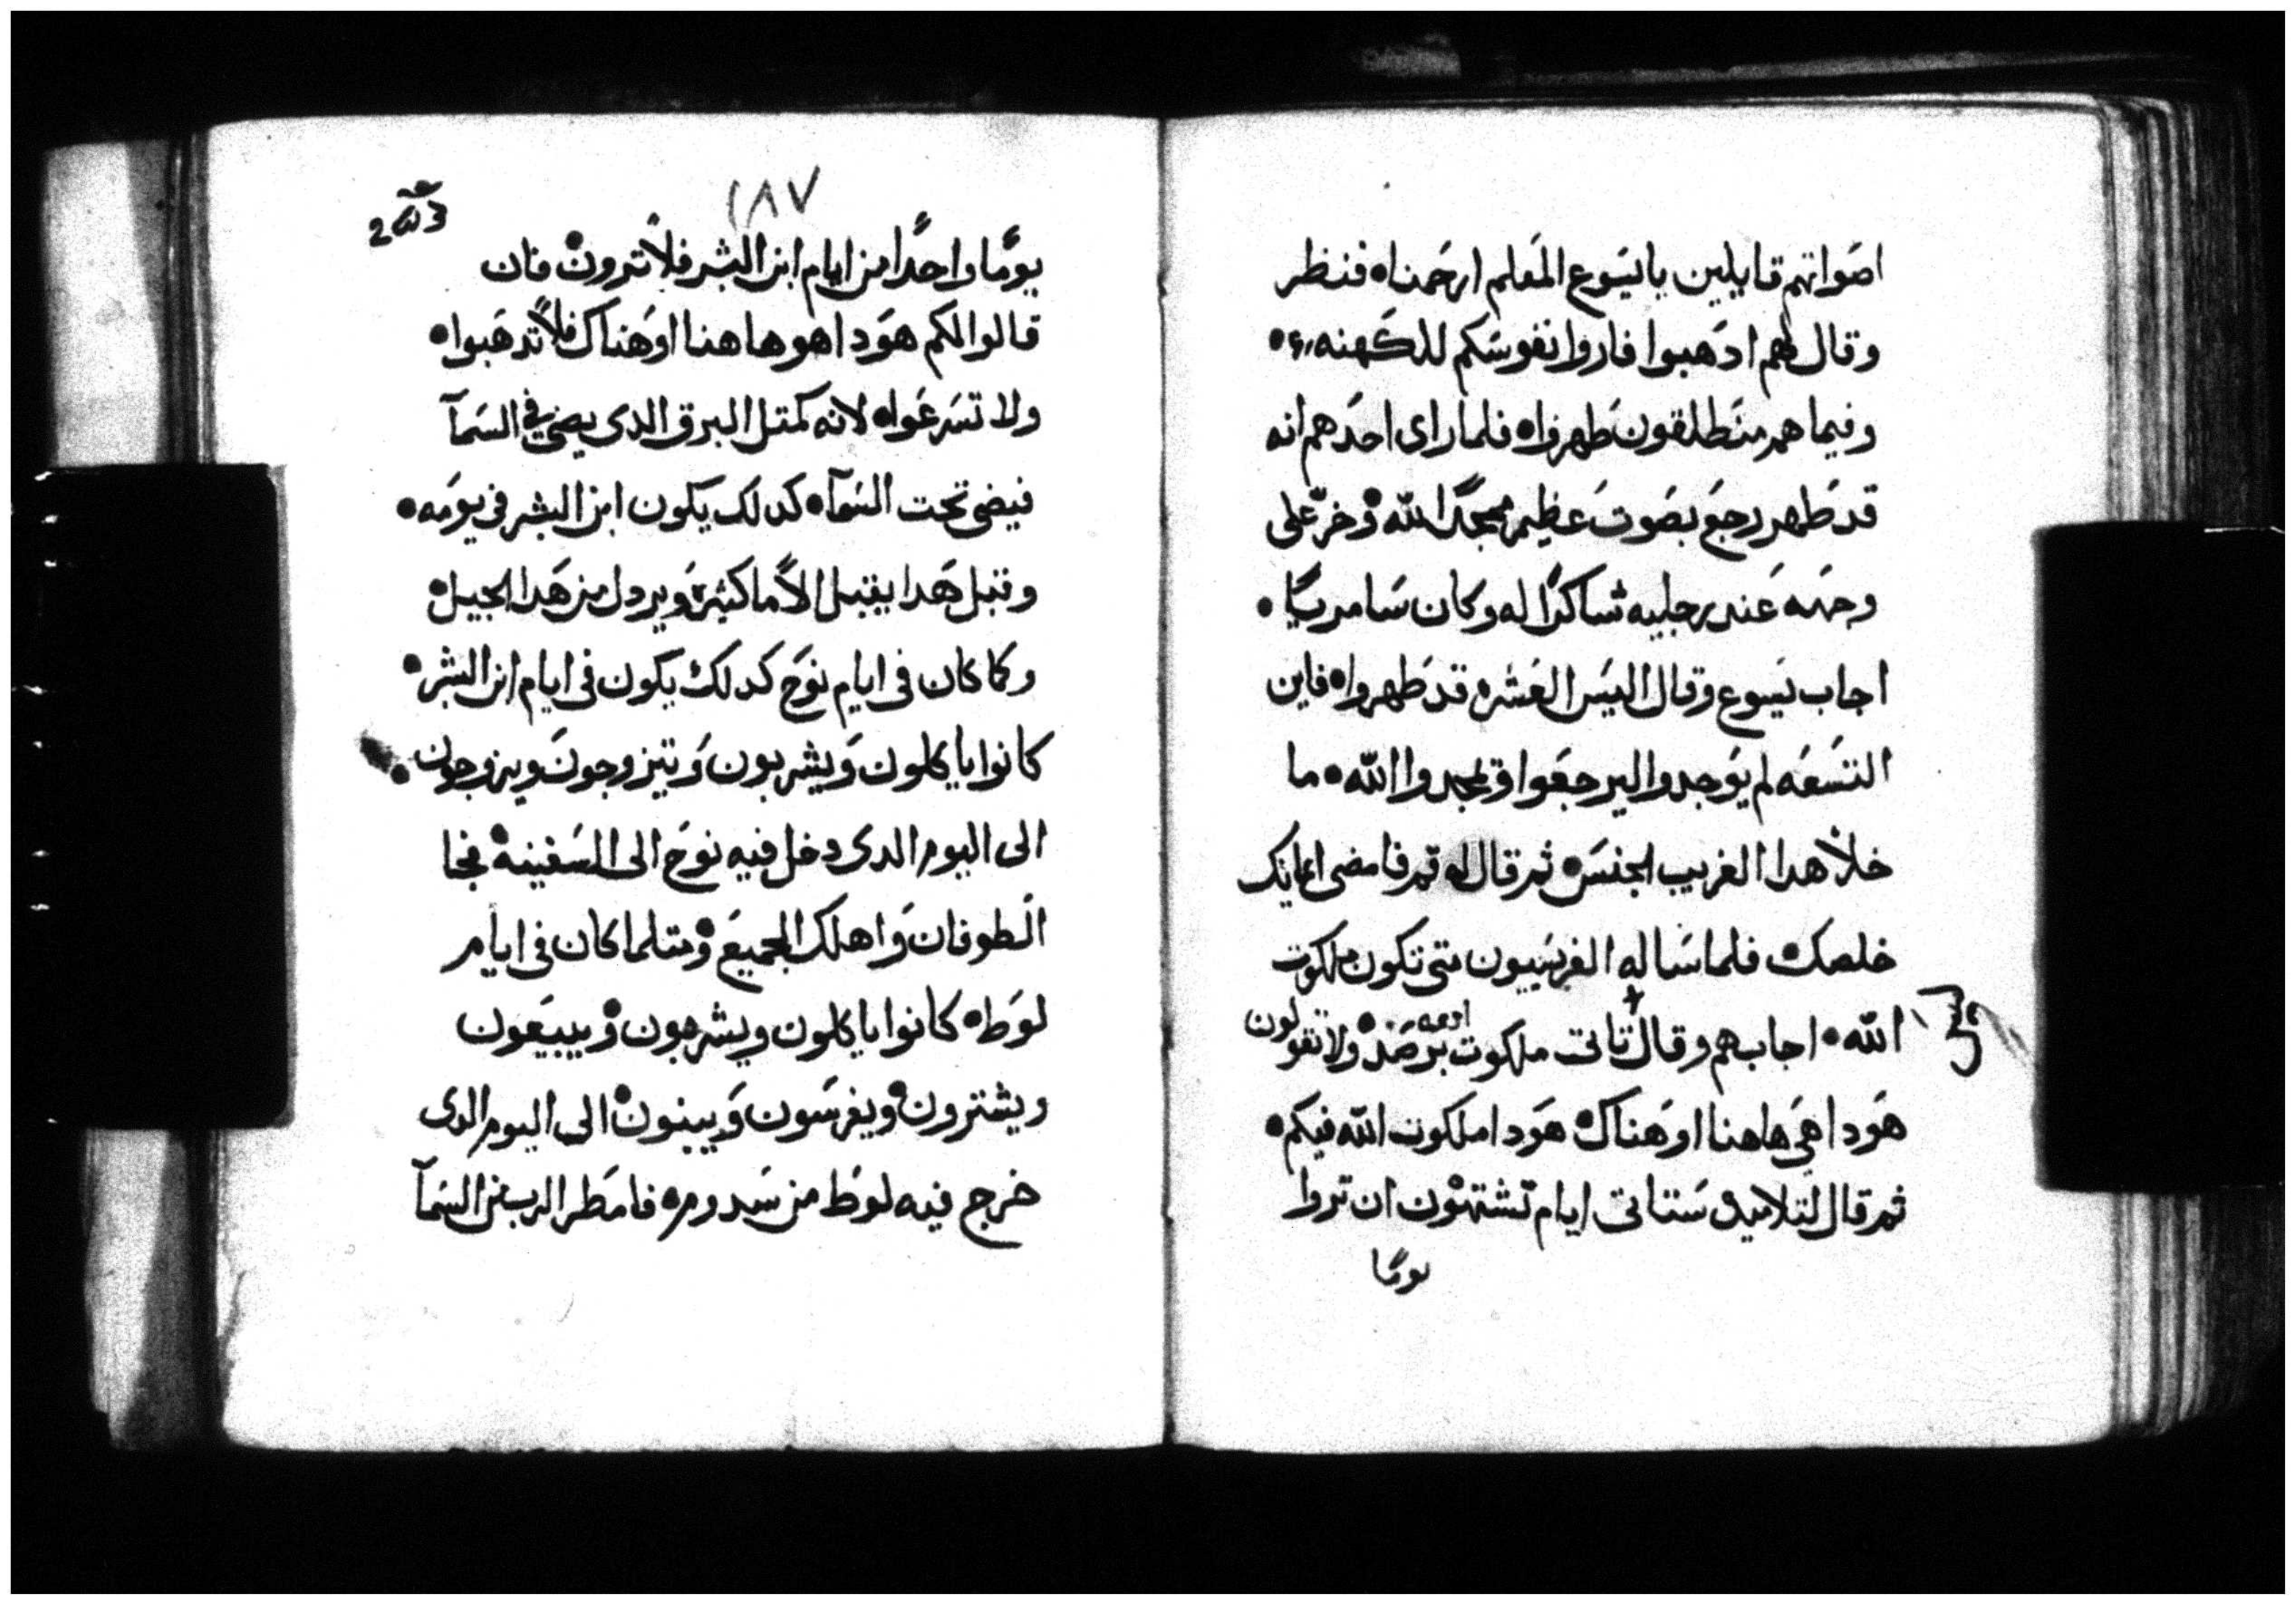 اصواتهم قايلين يا يسوع المعلم ارحمنا ٥ فنظر
وقال لهم ادهبوا فاروا نفوسكم للكهنه ٥
وفيما هم منطلقون طهروا ٥ فلما راى احدهم انه
قد طهر رجع بصوت عظيم ممجدًا لله ٥ وخرّ على
وجهه عند رجليه شاكرًا له وكان سامريًا ٥
اجاب يسوع وقال اليس العشره قد طهروا ٥ فاين
التسعه لم يوجدوا ليرجعوا ويمجدوا الله ٥ ما
خلا هدا الغريب الجنس ٥ ثم قال له قم فامضى ايمانك
خلصك ٥ فلما ساله الفريسيون متى تكون ملكوت
الله ٥ اجابهم وقال تاتى ملكوت برصد ٥ ولا تقولون
هودا هى هاهنا او هناك ٥ هودا ملكوت الله فيكم ٥
ثم قال لتلاميده ستاتى ايام تشتهون ان تروا
يومًا
١٨٧
يومًا واحدًا من ايام ابن البشر فلا ترون ٥ فان
قالوا لكم هودا هو هاهنا او هناك فلا تدهبوا ٥
ولا تسرعوا ٥ لانه كمتل البرق الدى يضى فى السمآ
فيضى تحت السمآ ٥ كدلك يكون ابن البشر فى يومه ٥
وقبل هدا يقبل الامًا كثيرة ويردل من هدا الجيل ٥
وكما كان فى ايام نوح كدلك يكون فى ايام ابن البشر ٥
كانوا ياكلون ويشربون وتيزوجون ويزوجون ٥
الى اليوم الدى دخل فيه نوح الى السفينه ٥ فجا
الطوفان واهلك الجميع ٥ ومتلما كان فى ايام
لوط ٥ كانوا ياكلون ويشربون ٥ ويبيعون
ويشترون ٥ ويغرسون ويبنون ٥ الى اليوم الدى
خرج فيه لوط من سدوم ٥ فامطر الرب من السمآ